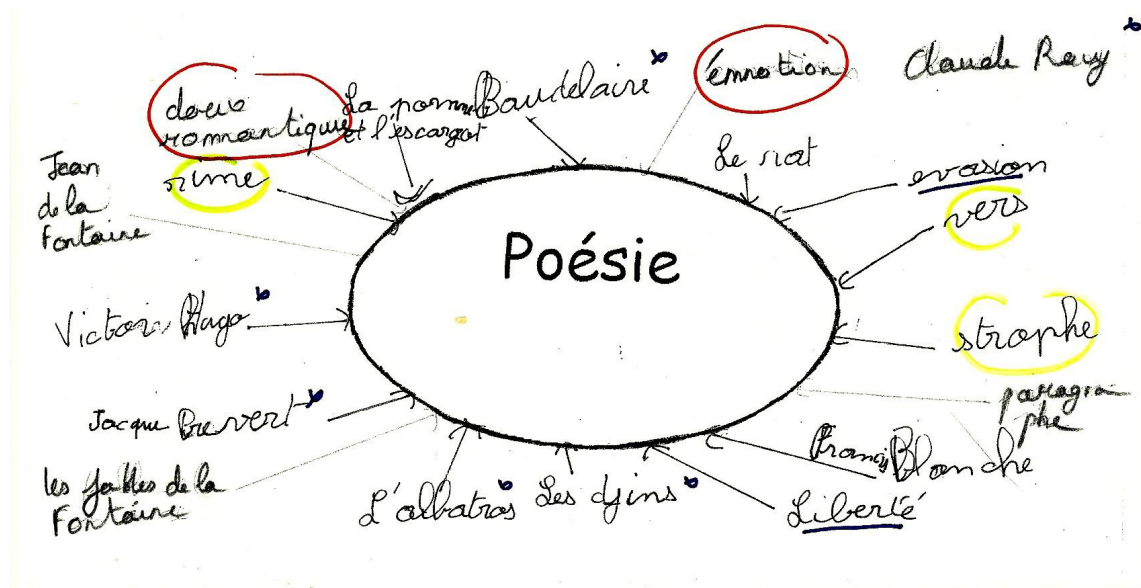 doux
romantique
La pomme
et l'escargot
Baudelaire
émotion
Claude Roy
Jean
de la
Fontaine
rime
Le rat
evasion
vers
Poésie
Victor Hugo
strophe
paragra
phe
Jacque Prevert
Francis Blanche
les fables de la
Fontaine
L'albatros
Les djins
Liberté